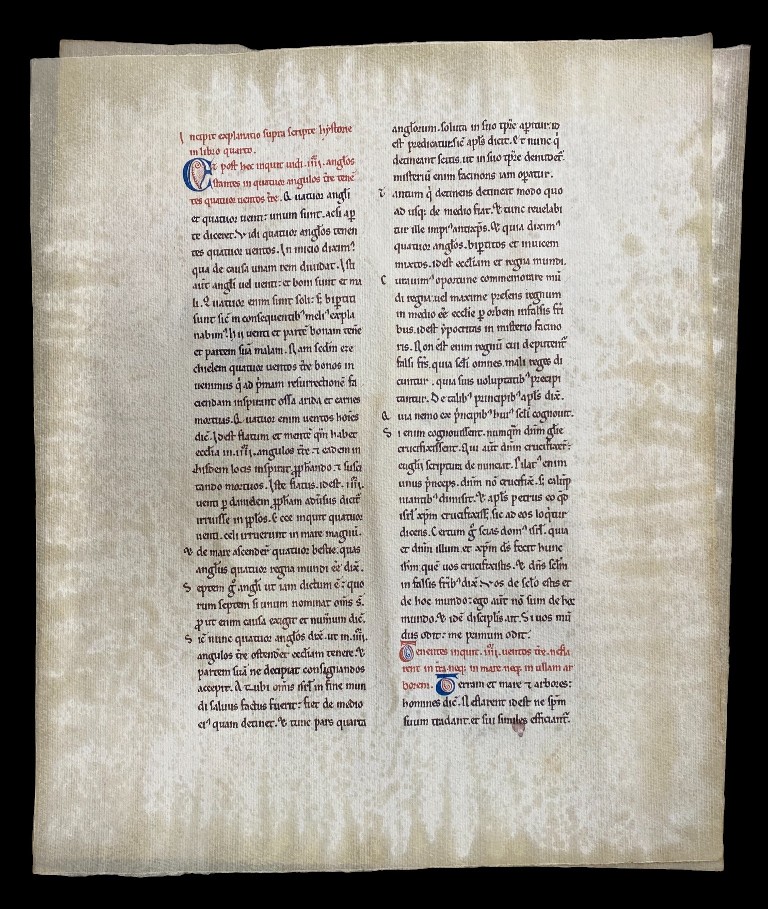 Incipit explanatio supra scripte hystorie
in libro quarto.
Et post hoc inquit uidi .iiii. anglos
stantes in quatuor angulos t̄re tene
tes quatuor uentos t̄re. Quatuor angli
et quatuor uenti: unum sunt. acsi ap̲
te diceret. Vidi quatuor anglos tenen
tes quatuor uentos. In inicio diximꝰ
qua de causa unam rem diuidat. Isti
aut̄ angli uel uenti: et boni sunt et ma
li. Quatuor enim sunt soli: s; bip̲titi
sunt sic̄ in consequentibꝰ meliꝰ expla
nabimꝰ. hii uenti et partē bonam tene
et partem suā malam. Nam sc̄dm eze
chielem quatuor uentos t̄re bonos in
uenimus q̇ ad p̓mam resurrectionē fa
ciendam inspirant ossa arida et carnes
mortuas. Quatuor enim uentos hoīes
dic̄. Idest flatum et mentē
ecclia in .iiii. angulos t̄re ⁊ eadem in
eisdem locis inspirat p̱phando ⁊ susci
tando mortuos. Iste flatus. idest .iiii.
uenti p̲ danielem p̱pham
irruisse in pp̄los. Et ecce inquit quatuor
uenti celi irruerunt in mare magnū.
⁊ de mare ascender̄ quatuor bestie. quas
anglus quatuor regna mundi ee dix̄.
Septem g̊ angli ut iam dictum ē: quo
rum septem si unum nominat om̄s s̄.
p̱ut enim causa exigit et num̄um dic̄.
Sic̄ nunc quatuor anglos dix̄. ut in .iiii.
angulos t̄re ostender̄ eccliam tenere. ⁊
partem suā ne decipiat consignandos
accepit. At ubi omīs isrl̄ in fine mun
di saluus factus fuerit: fiet de medio
eiꝰ quam detinet. ⁊ tunc pars quarta
anglorum. soluta in suo tp̄re aperitur. id
est predicatur. sic̄ apl̄s dicit. Et nunc q̇
detineant scitis. ut in suo tp̄re denudet̄.
misteriū enim facinoris iam operatur.
Tantum q̇ detinens detineat modo quo
ad usq; de medio fiat. ⁊ tunc reuelabi
tur ille impiꝰ antixp̄s. ⁊ quia diximꝰ
quatuor anglos. bip̲titos et inuicem
mixtos. idest eccliam et regna mundi.
Curauimꝰ oportune commemorare mū
di regna uel maxime presens regnum
in medio ee ecclie p̲ orbem in falsis fr̄i
bus. idest ypocritas in misterio facino
ris. Non est enim regnū cui deputent̄
falsi fr̄s. quia seli omnes mali reges di
cuntur. quia suis uoluptatibꝰ precipi
tantur. De talibꝰ principibꝰ apl̄s dix̄.
Quia nemo ex p̓ncipibꝰ huiꝰ seli cognouit.
Si enim cognouissent. numqm̄ dn̄m glie
crucifixissent. Qui aut̄ dn̄m crucifixer̄:
euglii scriptura denuntiat. Pilatꝰ enim
unus p̓nceps. dn̄m nō crucifixit. s;
mantibꝰ dimisit. ⁊ apl̄s petrus eo qd
isrl̄ xp̄m crucifixisset, sic ad eos loq̓tur
dicens. Certum g̊ sciat domꝰ isrl̄. quia
et dn̄m illum et xp̄m d̄s fecit hunc
ihm̄ quē uos crucifixistis. ⁊ dn̄s
in falsis fr̄ibꝰ dix̄. Vos de sc̄lo estis et
de hoc mundo: ego aut̄ nō sum de hoc
mundo. ⁊ idē disciplīs ait. Si uos mū
dus odit: me primum odit.
Tenentes inquit .iiii. uentos t̄re. ne fla
rent in t̄ra. neq; in mare. neq; in ullam ar
borem. Terram et mare ⁊ arbores:
homines dic̄. Ne flarent idest ne sp̄m
suum tradant. et sui similes efficiant̄.